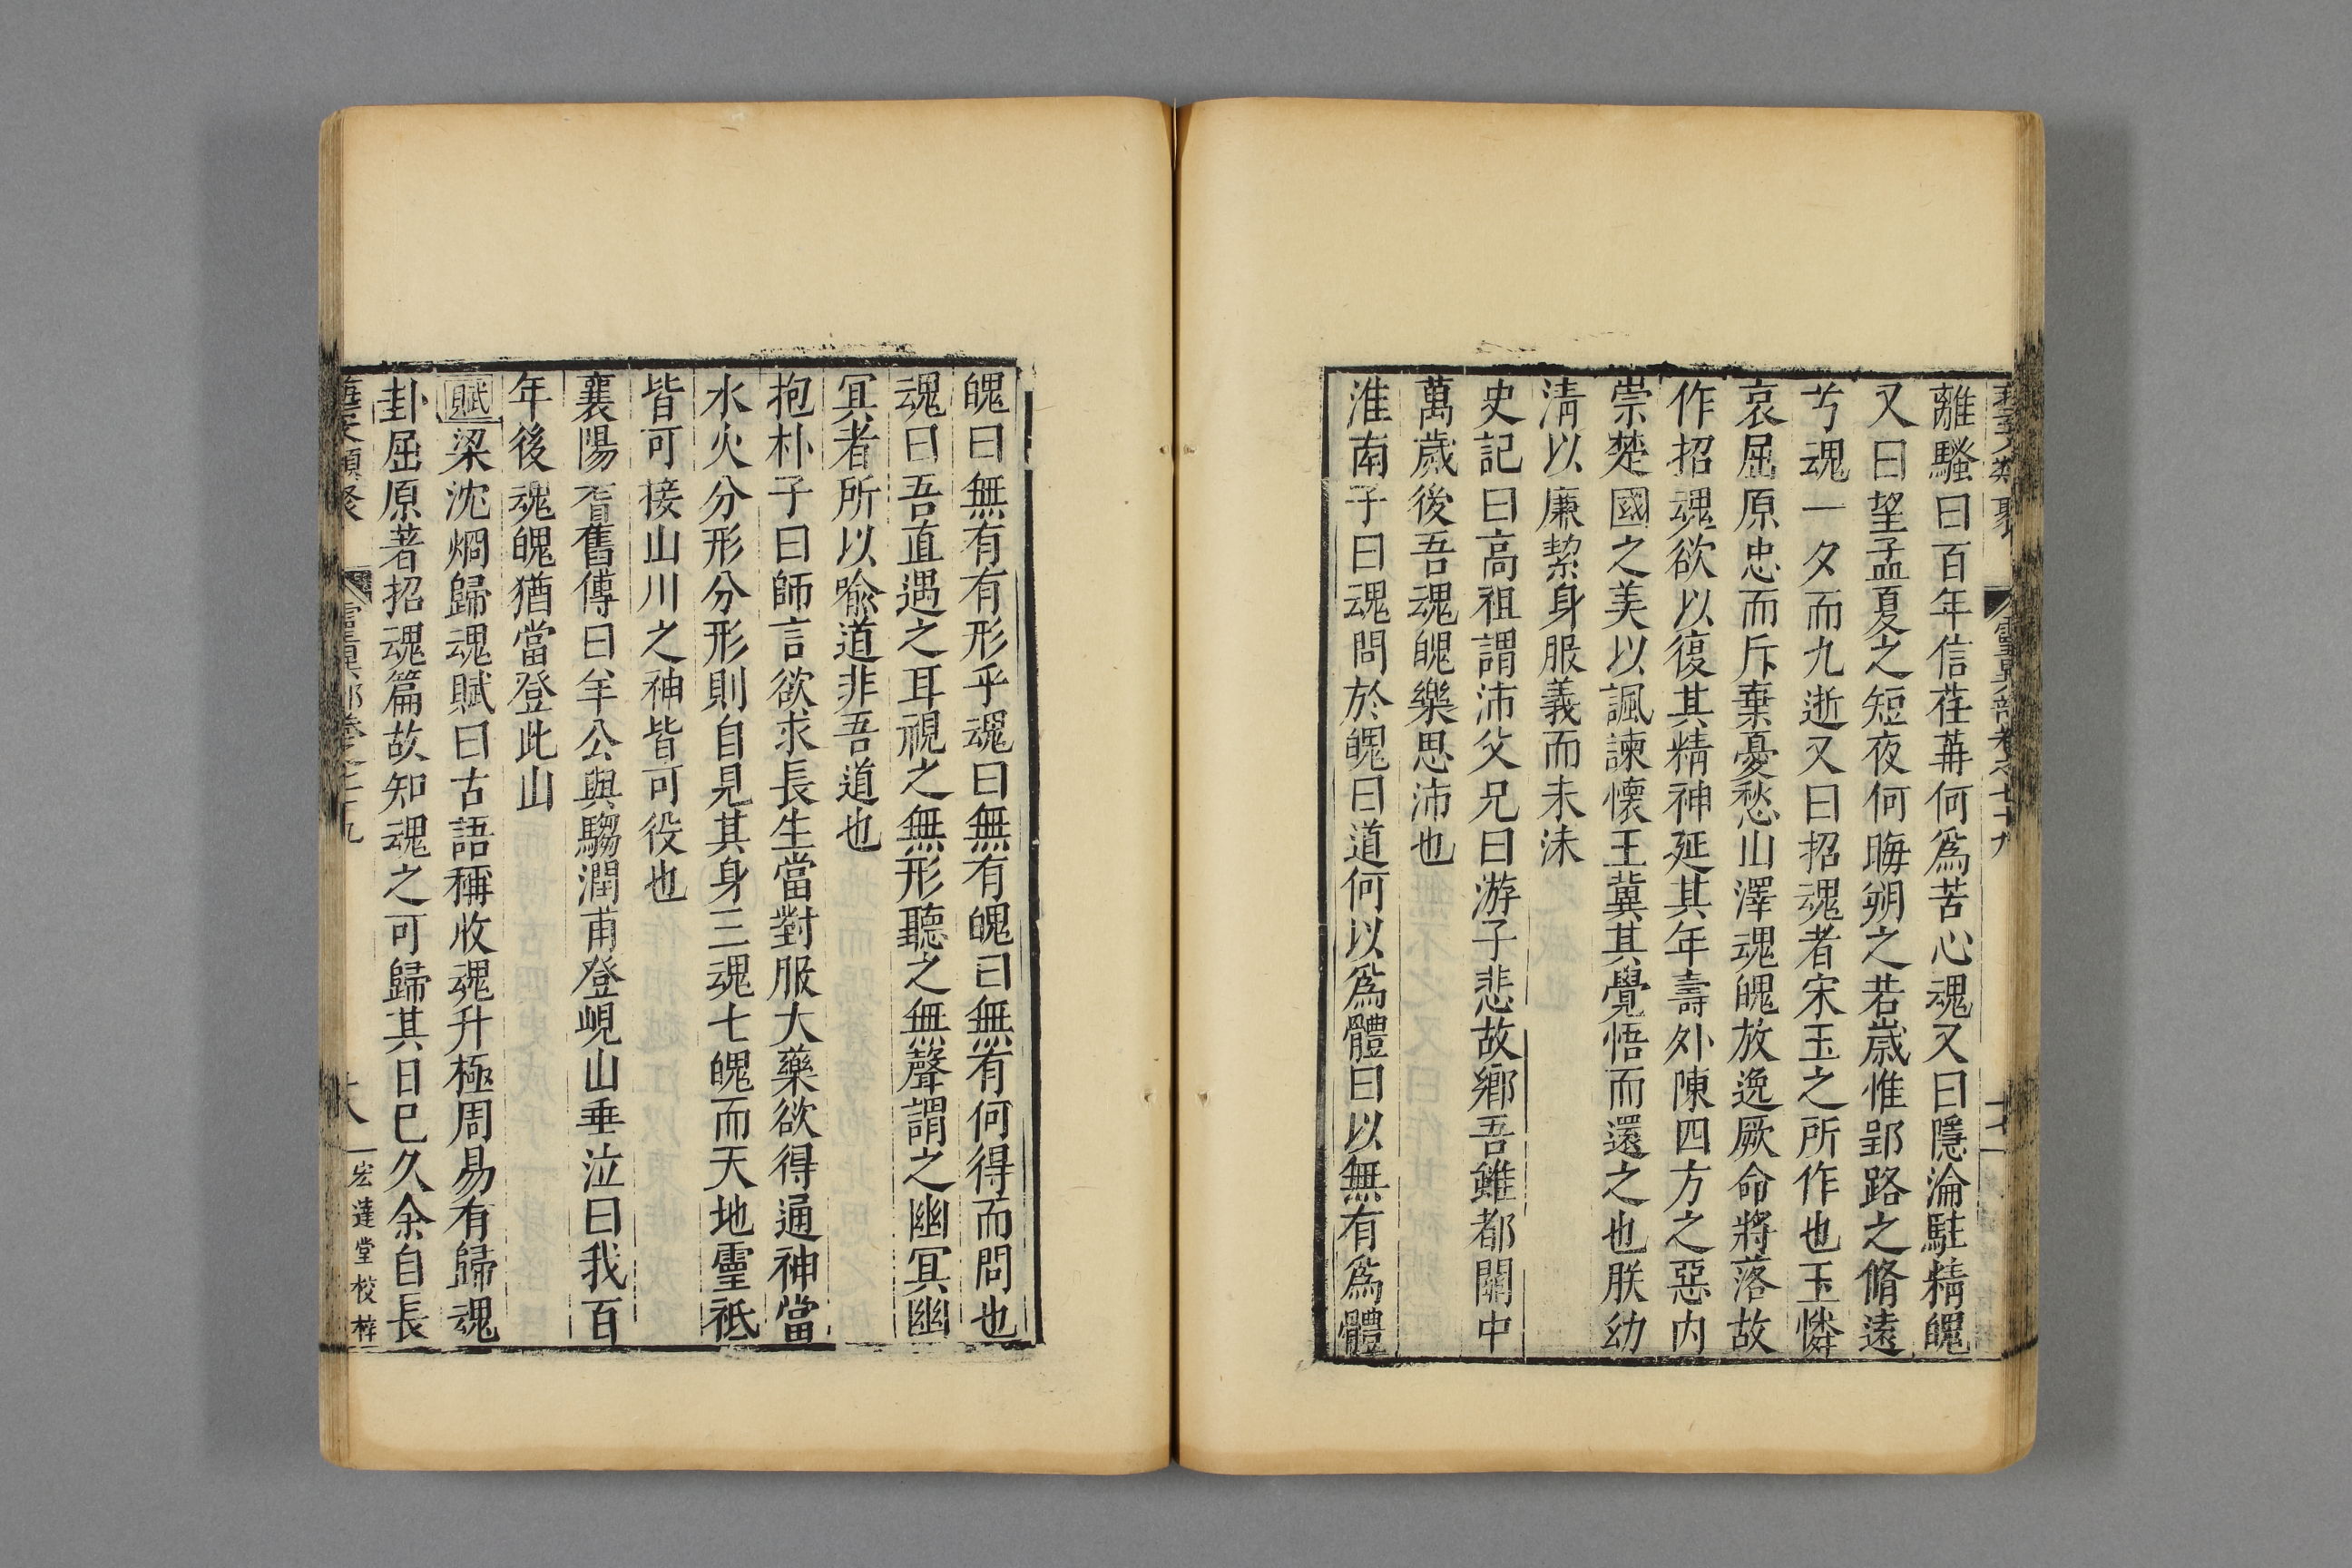 藝文類聚 靈異部卷之七十九 十七
離騷曰百年信荏苒何爲苦心魂又曰隱淪駐精魄
又曰望孟夏之短夜何晦朔之若歳惟郢路之脩遠
兮魂一夕而九逝又曰招魂者宋玉之所作也玉憐
哀屈原忠而斥棄憂愁山澤魂魄放逸厥命將落故
作招魂欲以復其精神延其年壽外陳四方之惡内
崇楚國之美以諷諫懷王冀其覺悟而還之也朕幼
清以廉絜身服義而未沬
史記曰高祖謂沛父兄曰游子悲故鄉吾雖都關中
萬歲後吾魂魄樂思沛也
淮南子曰魂問於魄曰道何以爲體曰以無有爲體
魄曰無有有形乎魂曰無有魄曰無有何得而問也
魂曰吾直遇之耳視之無形聽之無聲謂之幽冥幽
冥者所以喻道非吾道也
抱朴子曰師言欲求長生當對服大藥欲得通神當
水火分形分形則自見其身三魂七魄而天地靈祇
皆可接山川之神皆可役也
襄陽耆舊傳曰羊公與騶潤甫登峴山垂泣曰我百
年後魂魄猶當登此山
賦梁沈炯歸魂賦曰古語稱收魂升極周易有歸魂
卦屈原著招魂篇故知魂之可歸其日已久余自長
藝文類聚 靈異部卷之七十九 十八 宏達堂校梓